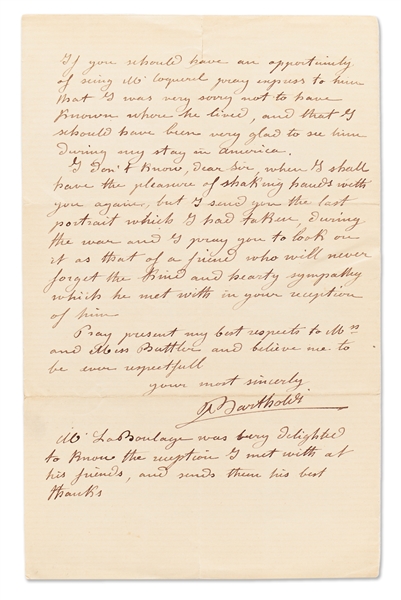 If you schould have an opportunity
of seing Mr Coquerel pray express to him
that I was very sorry not to have
known where he lived, and that I
schould have been very glad to see him
during my stay in america.
I don't know, dear Sir when I shall
have the pleasure of shaking hands with
you again, but I send you the last
portrait which I had taken, during
the war and I pray you to look on
it as that of a friend who will never
forget the kind and hearty sympathy
which he met with in your reception
of him
Pray present my best respects to Mrs
and Miss Buttler and believe me to
be ever respectfull
your most sincerly.
A Bartholdi
Mr LaBoulaye was very delighted
to know the reception I met with at
his friends, and sends them his best
thanks